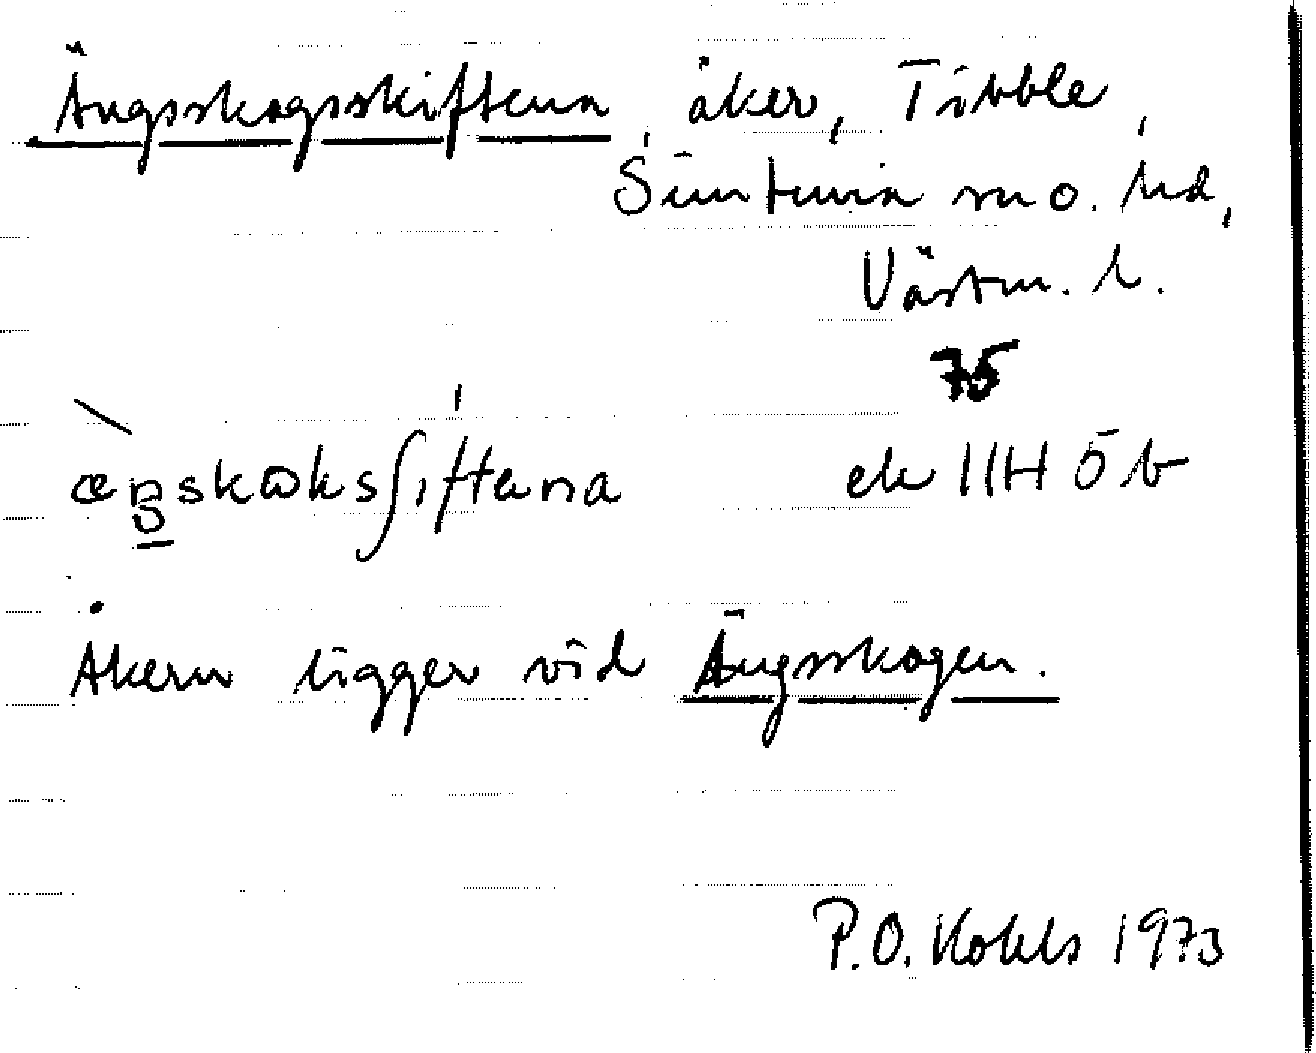 Ängsskogsskiftena, åker, Tibble,
Simtuna sn o. hd,
Västm. l.
75
ek 11H 5b
Åkern ligger vid Ängsskogen.
P.O. Kohls 1973